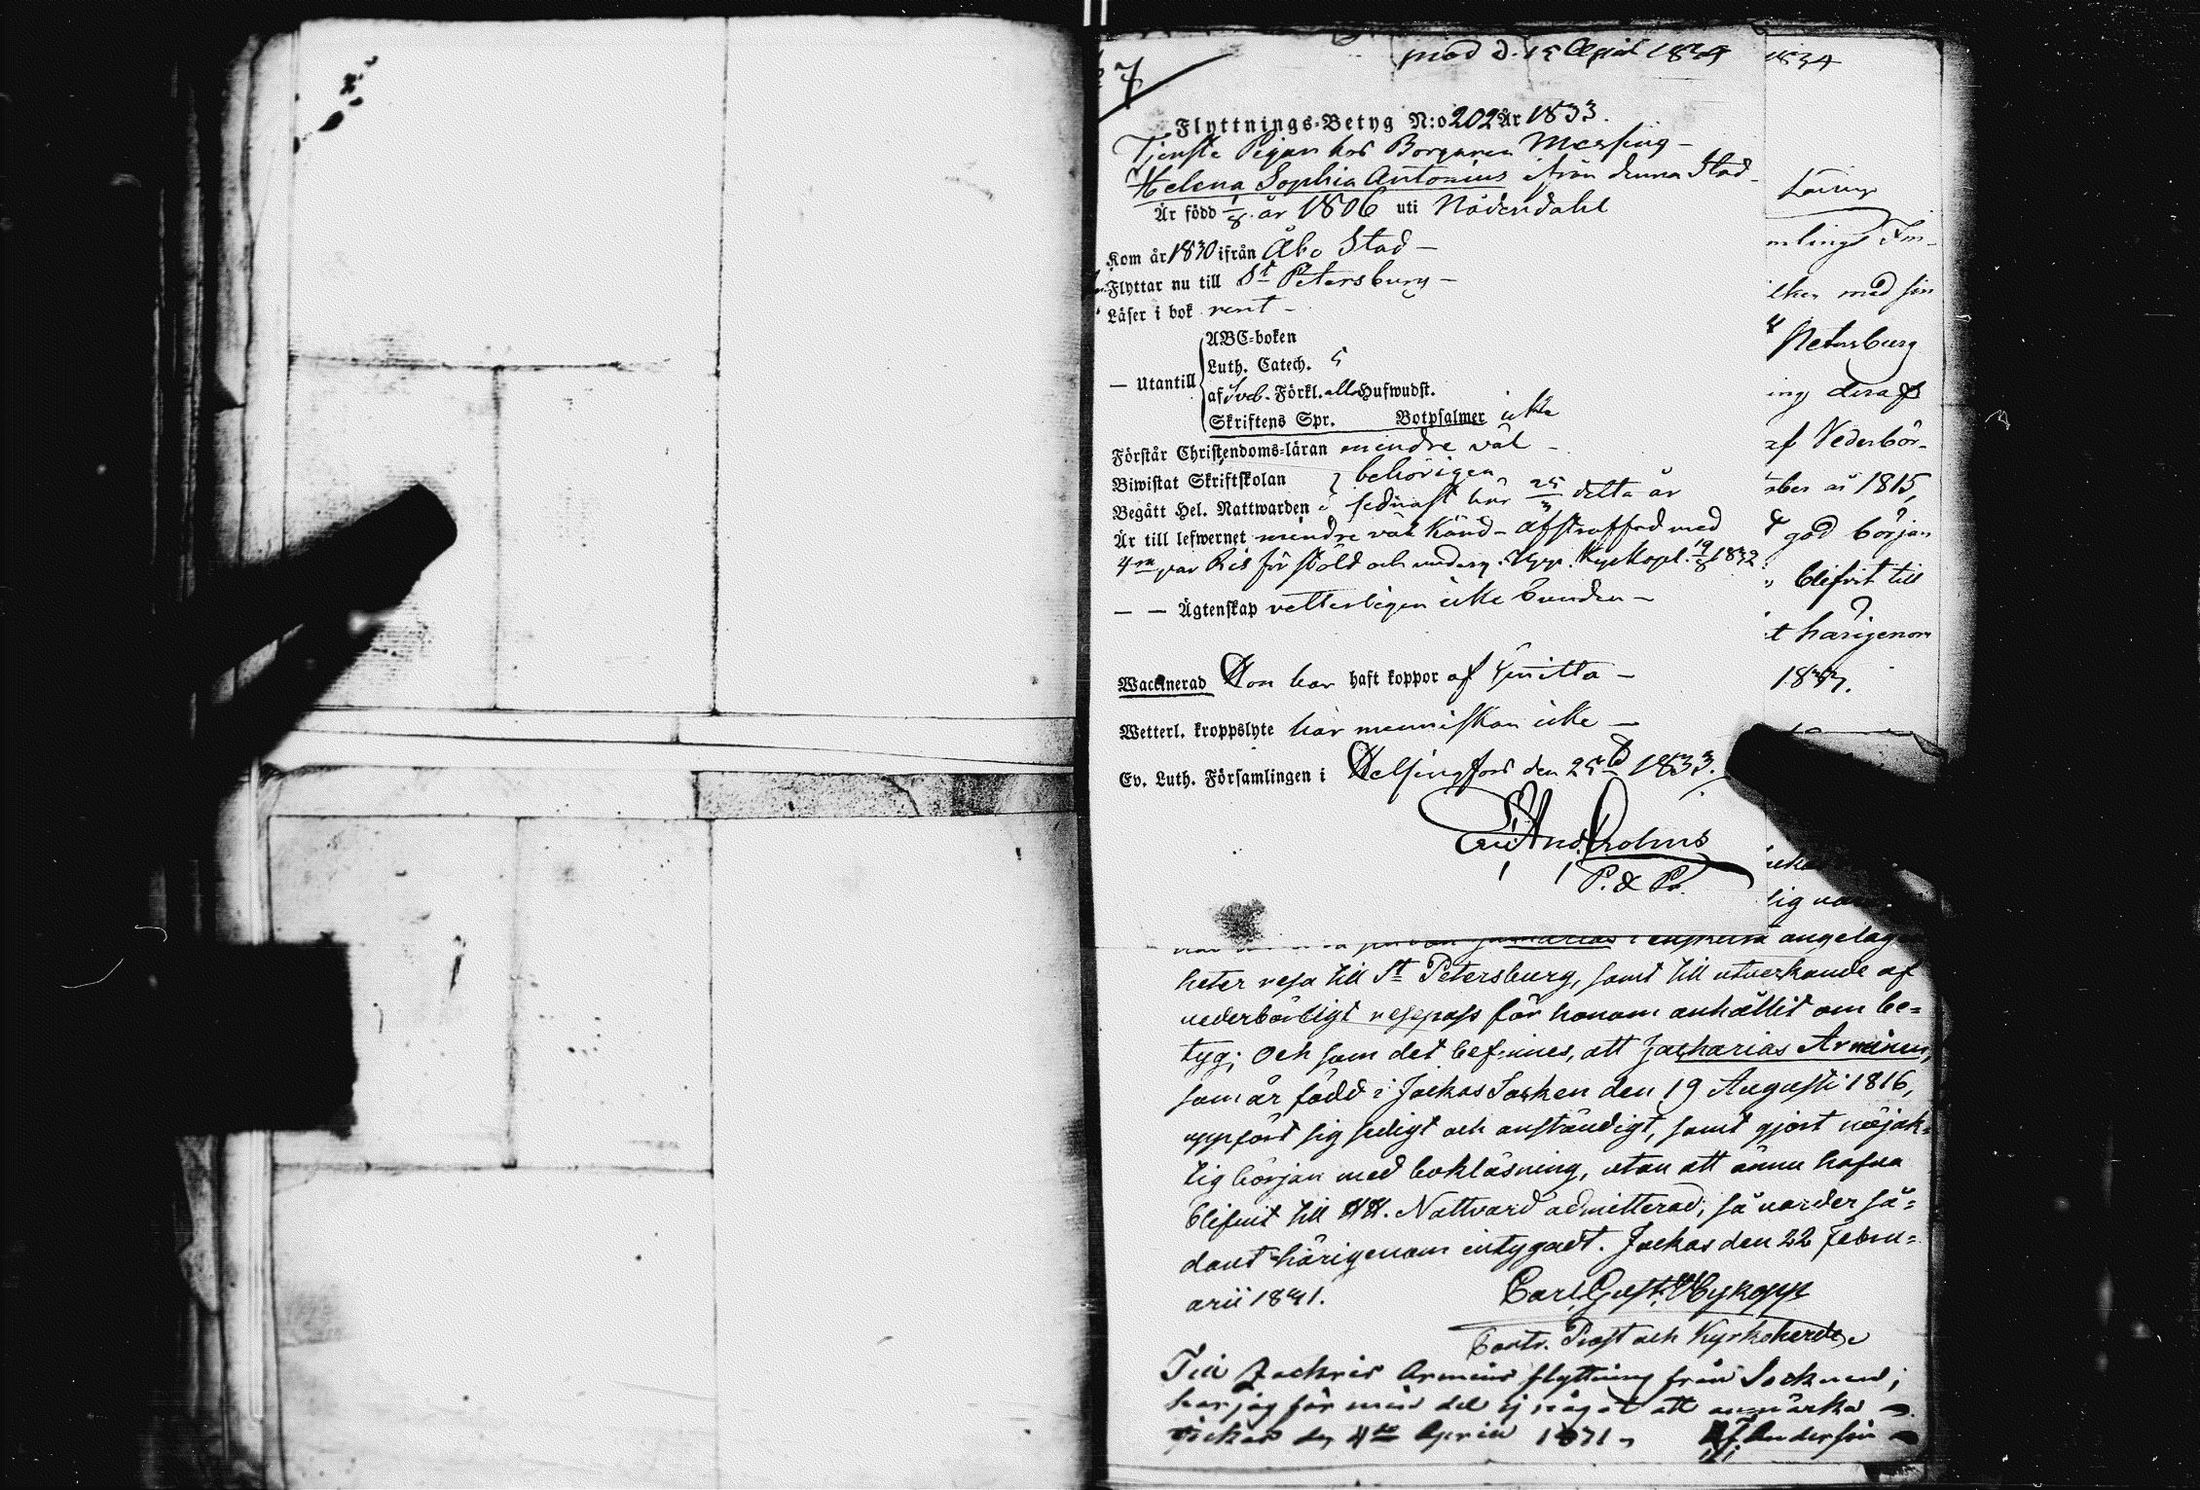 7
med d. 15 April 1834
Flyttnings-Betyg N:o 202 År 1833.
Tjenste Pigan hos Borgaren Messing –
Helena Sophia Antonius ifrån denna Stad –
Är född 1/8 år 1806 uti Nådendahl
Kom år 1830 ifrån Åbo Stad –
Flyttar nu till St Petersburg –
Läser i bok rent –
— Utantill
ABC-boken
Luth. Catech. 5
af Förkl. alla Hufwudst.
Skriftens Spr. Botpsalmer icke
Förstår Christendoms-läran mindre väl –
Biwistat Skriftskolan behörigen
Begått Hel. Nattwarden sednast här 25/3 detta år
Är till lefwernet mindre väl känd – afstraffad med
4 par Ris för stöld och underg. Upp. Kyrkopl. 19/8 1832
— — Ägtenskap vetterligen icke bunden –
Waccinerad Hon har haft koppor af
Wetterl. kroppslyte har menniskan icke –
Ev. Luth. Församlingen i Helsingfors den 25 1833.
P. & Pr.
1834
mlings
ilken med sin
Petersburg
ing deraf
af Vederbör-
ober år 1815,
god början
blifvit till
t härigenom
angeläg
heter resa till St Petersburg, samt till utverkande af
vederbörligt respass för honom anhållit om be-
tyg; Och som det befinnes, att Zacharias Arminen,
som är född i Jockas Socken den 19 Augusti 1816,
uppfört sig sedigt och anständigt, samt gjort nöjak-
tig början med bokläsning, utan att ännu hafva
blifvit till HH. Nattvard admitterad; så varder så-
dant härigenom intygadt. Jockas den 22 Febru-
arii 1831.
Carl Gust. Wykopp
Contr. Prost och Kyrkoherde
Till Zachris Armins flyttning från Socknen,
har jag för min del ej något att anmärka
Jockas den 4de April 1831
Andersin